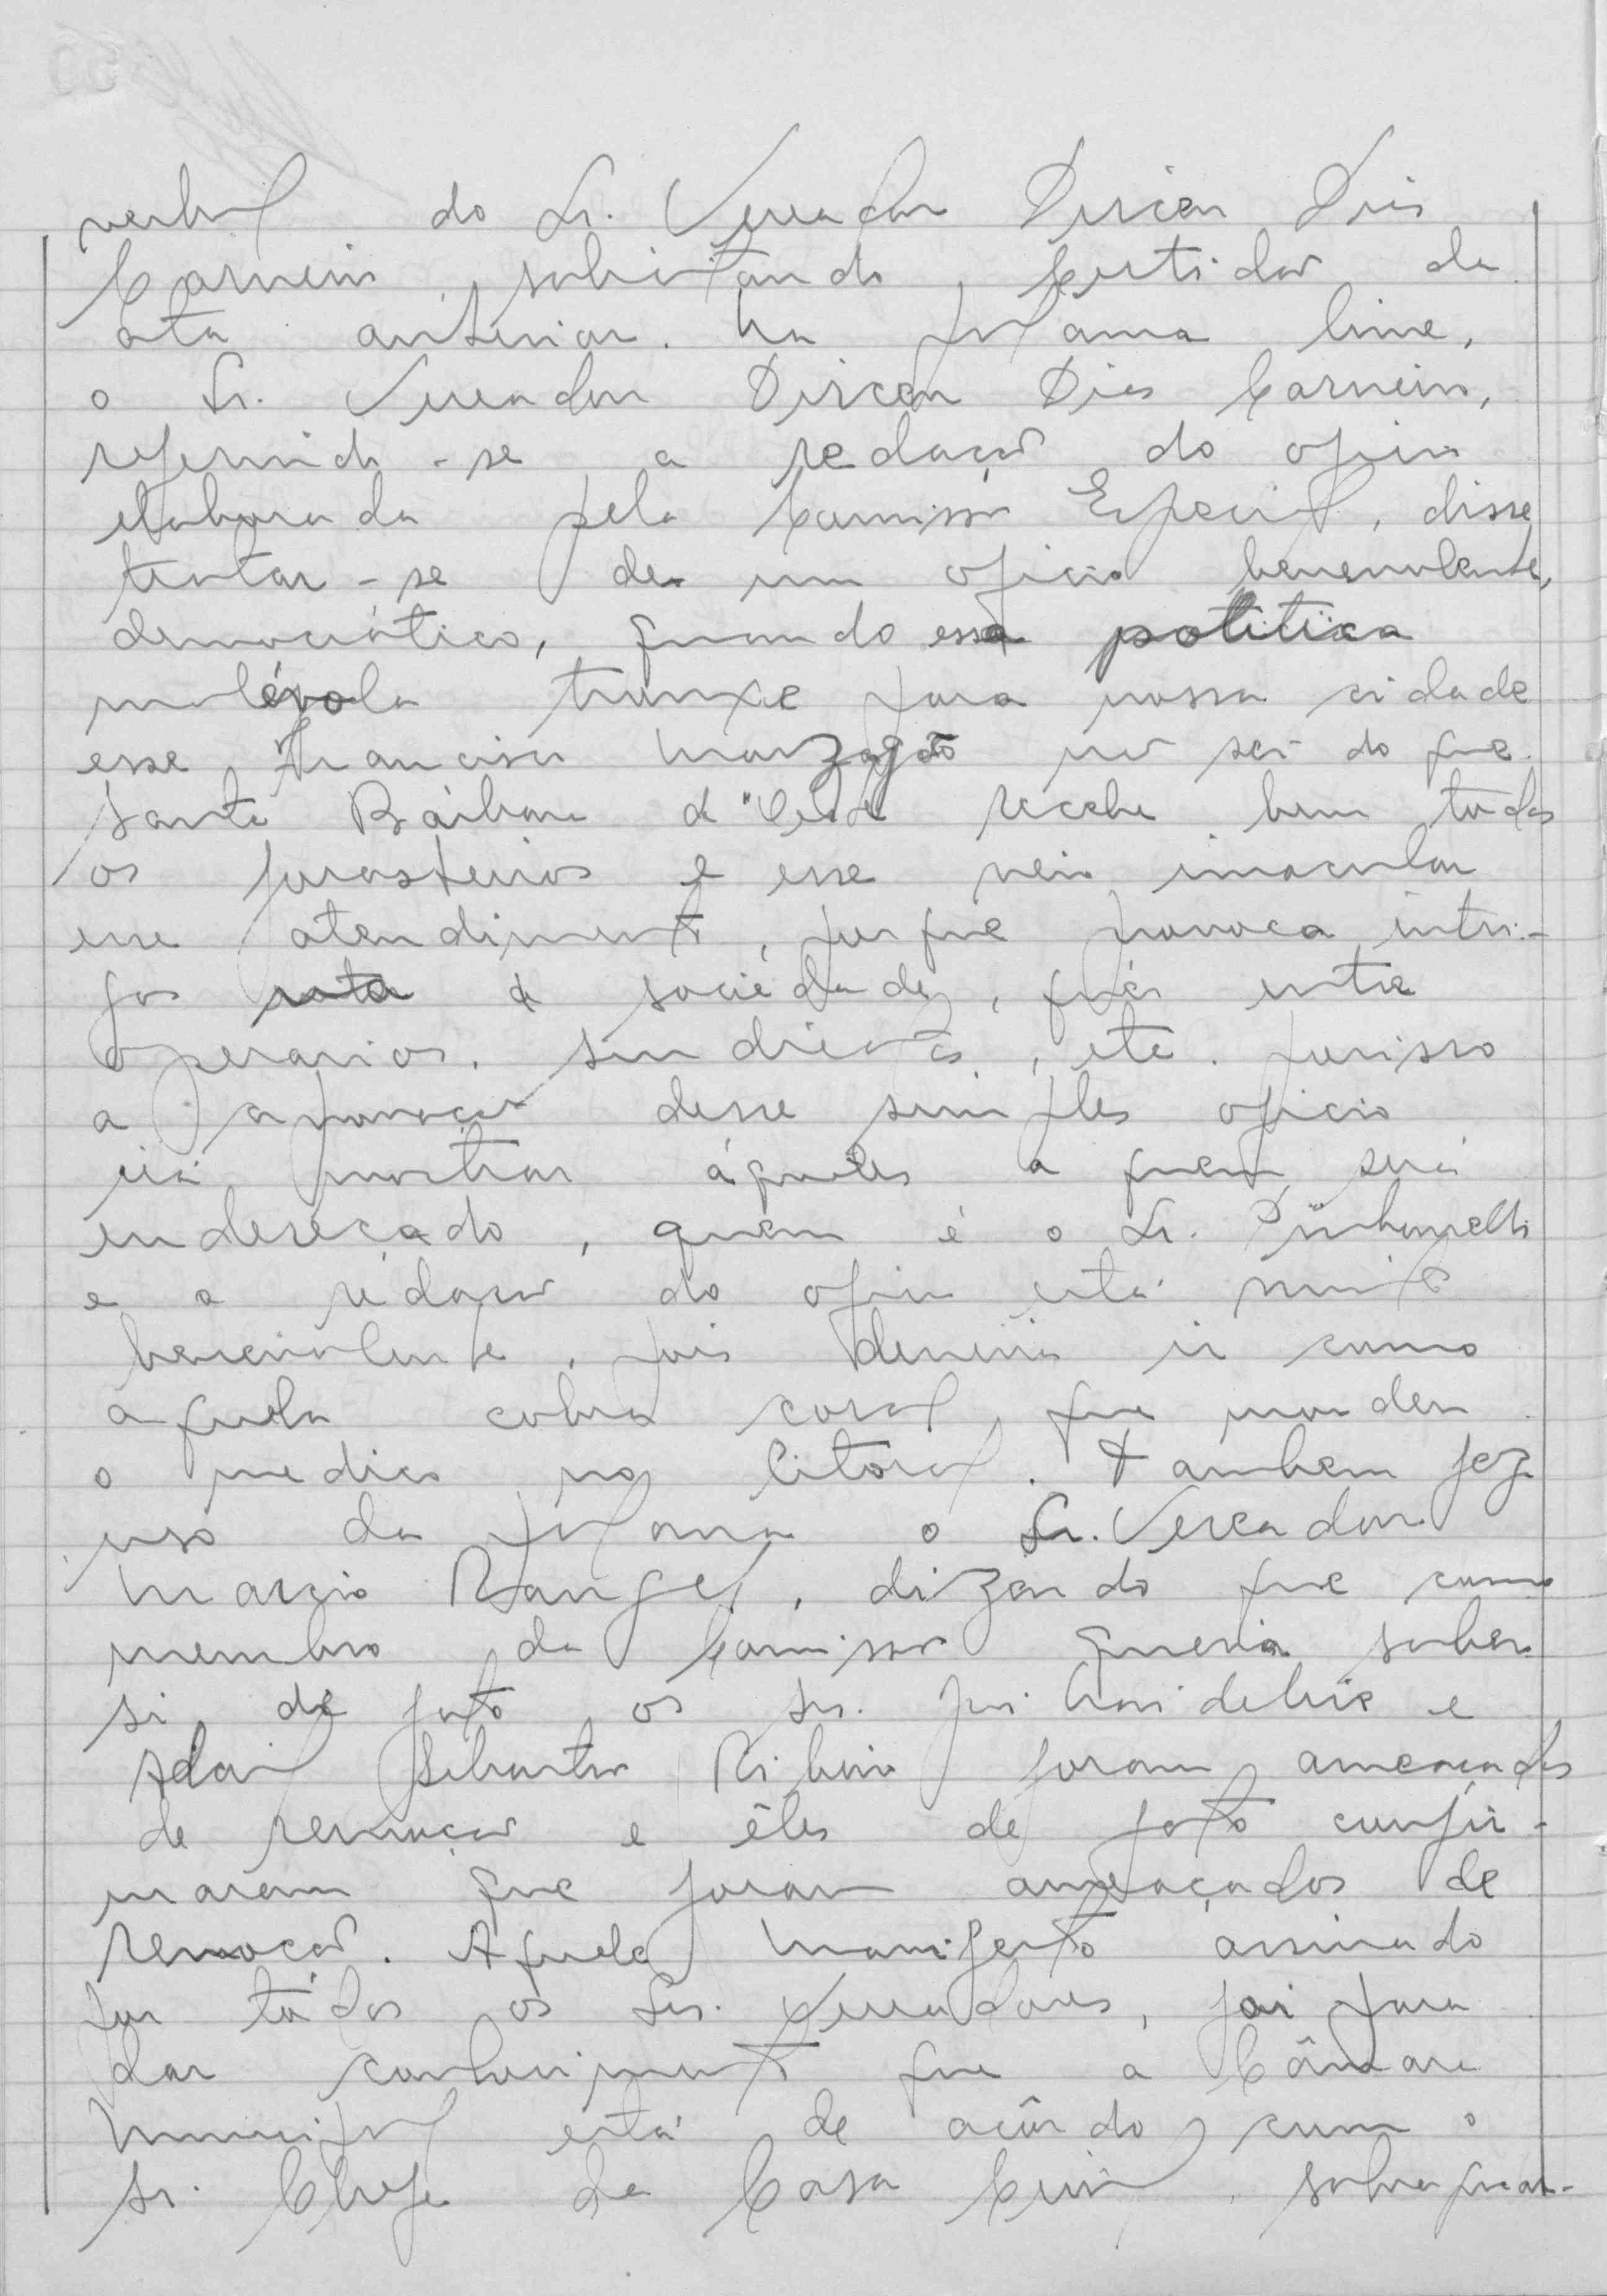 verbal do Sr. Vereador Dirceu Dias
Carneiro, solicitando certidão da
ata anterior. Na palavra livre,
o Sr. Vereador Dirceu Dias Carneiro,
referindo-se a redação do oficio
elaborada pela Comissão Especial, disse
tratar-se de um oficio benevolente,
democrático, quando essa politica
malévola trouxe para nossa cidade
esse Francisco Marzagão não sei do que.
Santa Bárbara d'Oeste recebe bem todos
os forasteiros e esse veio imacular
esse atendimento, porque provoca intri-
gas a sociedade, quér entre
operarios, sindicatos, etc. porisso
a aprovação desse simples oficio
irá mostrar áqueles a quem será
endereçado, quem é o Sr.
e a redação do oficio está muito
benevolente, pois deveria ir como
aquela cobra coral, que mordeu
o medico no litoral. Tambem fez
uso da palavra o Sr. Vereador
Marcio Rangel, dizendo que como
membro da Comissão queria saber
si de fato os srs. e
Adail Sebastião Ribeiro foram ameaçados
de remoção e êles de fato confir-
maram que foram ameaçados de
remoção. Aquele manifesto assinado
por todos os Srs. Vereadores, foi para
dar conhecimento que a Câmara
Municipal está de acôrdo com o
Sr. Chefe da Casa Civil,